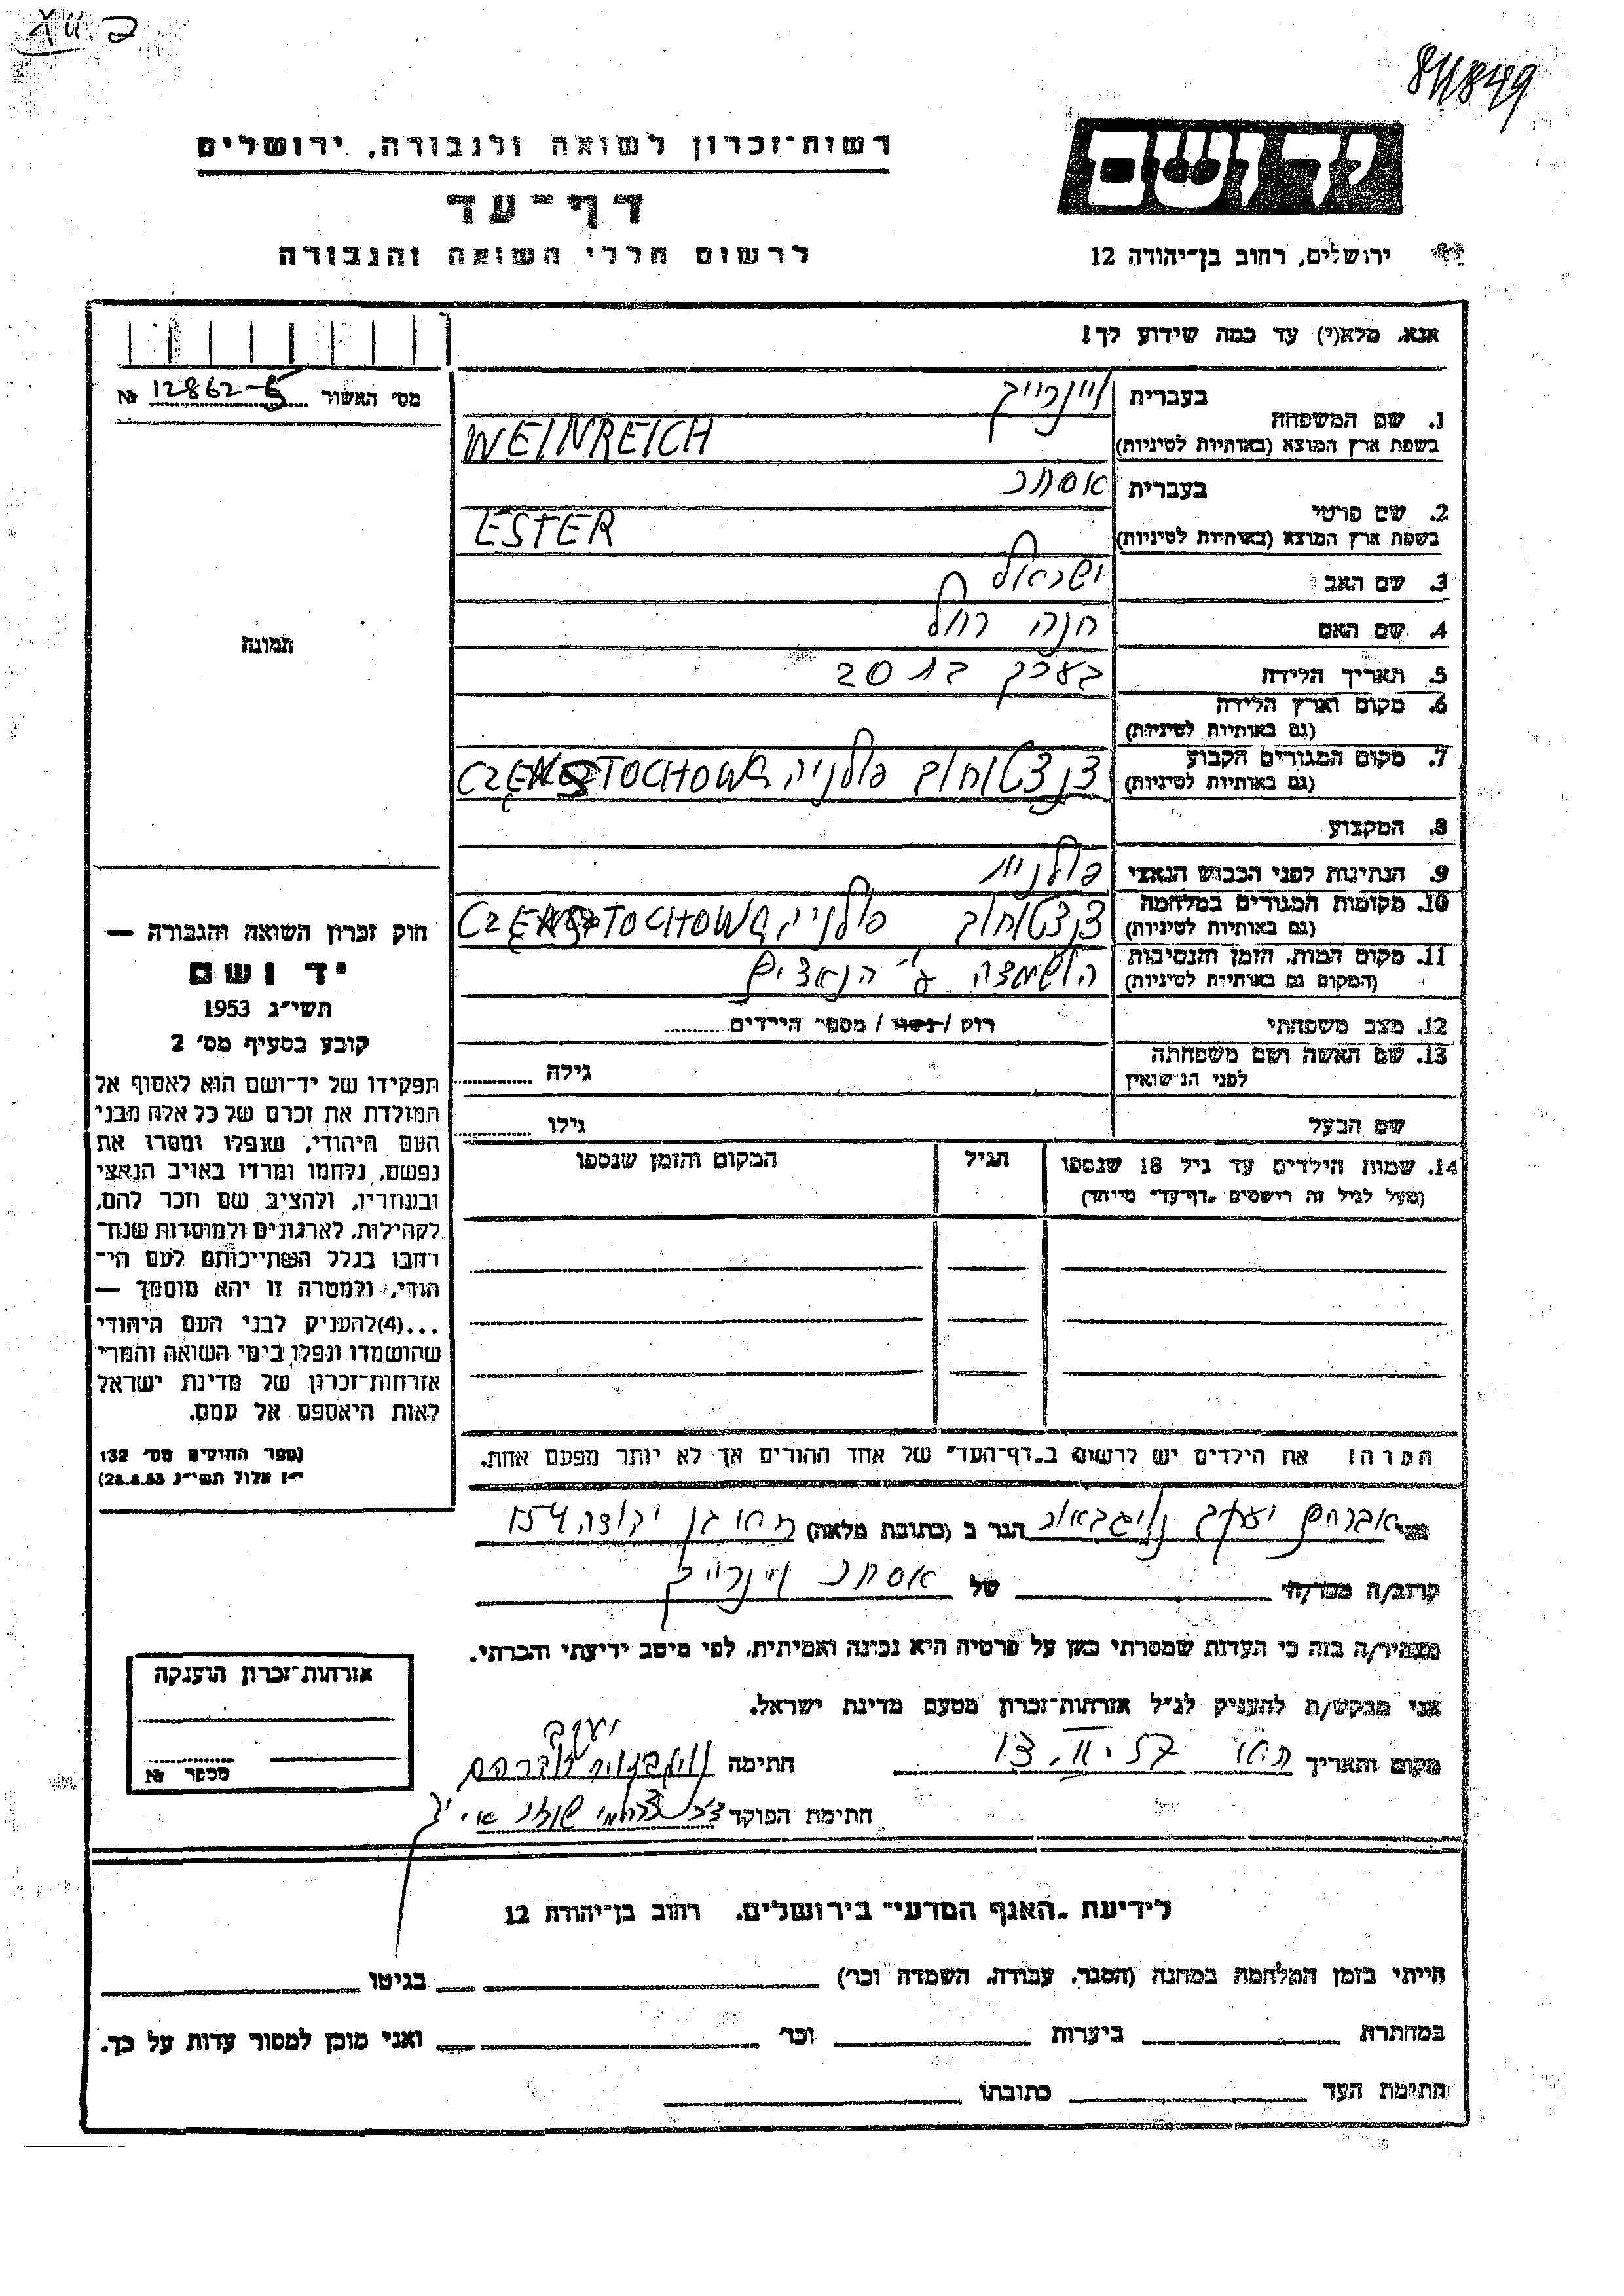 XII ב
811849
יד ושם
רשות־זכרון לשואה ולגבורה, ירושלים
דף־עד
לרשום חללי השואה והגבורה
ירושלים, רחוב בן־יהודה 12
אנא, מלא(י) עד כמה שידוע לך!
מס׳ האשור 12862-5 №
1. שם המשפחה
בעברית ויינרייך
בשפת ארץ המוצא (באותיות לטיניות) WEINREICH
2. שם פרטי
בעברית אסתר
בשפת ארץ המוצא (באותיות לטיניות) ESTER
3. שם האב ישראל
4. שם האם חנה רחל
5. תאריך הלידה בערך בת 20
6. מקום וארץ הלידה
(גם באותיות לטיניות)
7. מקום המגורים הקבוע צ'נצטוחוב פולניה
(גם באותיות לטיניות)
8. המקצוע
9. הנתינות לפני הכבוש הנאצי פולנית
10. מקומות המגורים במלחמה צ'נצטוחוב פולניה
(גם באותיות לטיניות)
11. מקום המות, הזמן והנסיבות הושמדה ע"י הנאצים
(המקום גם באותיות לטיניות)
12. מצב משפחתי רווק / נשוי / מספר הילדים
13. שם האשה ושם משפחתה גילה
לפני הנישואין
שם הבעל גילו
14. שמות הילדים עד גיל 18 שנספו הגיל המקום והזמן שנספו
(מעל לגיל זה רישמים „דף־עד" מיוחד)
הערה! את הילדים יש לרשום ב„דף־העד" של אחד ההורים אך לא יותר מפעם אחת.
תמונה
חוק זכרון השואה והגבורה —
יד ושם
תשי"ג 1953
קובע בסעיף מס׳ 2
תפקידו של יד־ושם הוא לאסוף אל
המולדת את זכרם של כל אלה מבני
העם היהודי, שנפלו ומסרו את
נפשם, נלחמו ומרדו באויב הנאצי
ובעוזריו, ולהציב שם וזכר להם,
לקהילות, לארגונים ולמוסדות שנח־
רבו בגלל השתייכותם לעם הי־
הודי, ולמטרה זו יהא מוסמך —
...(4)להעניק לבני העם היהודי
שהושמדו ונפלו בימי השואה והמרי
אזרחות־זכרון של מדינת ישראל
לאות היאספם אל עמם.
(ספר החוקים מס׳ 132
י״ז אלול תשי״ג 28.8.53)
אני אברהם יעקב הגר ב (כתובת מלאה) בן יהודה 154
קרוב/ה מכר/ה של אסתר ויינרייך
מצהיר/ה בזה כי העדות שמסרתי כאן על פרטיה היא נכונה ואמיתית, לפי מיטב ידיעתי והכרתי.
אני מבקש/ת להעניק לנ"ל אזרחות־זכרון מטעם מדינת ישראל.
מקום ותאריך חתימה
חתימת הפוקד
אזרחות־זכרון הוענקה
מספר №
לידיעת „האגף המדעי" בירושלים, רחוב בן־יהודה 12
הייתי בזמן המלחמה במחנה (הסגר, עבודה, השמדה וכו׳) בגיטו
במחתרת ביערות וכו׳ ואני מוכן למסור עדות על כך.
חתימת העד כתובתו